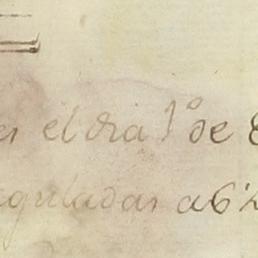 es el dia 1º de
reguladas a 6